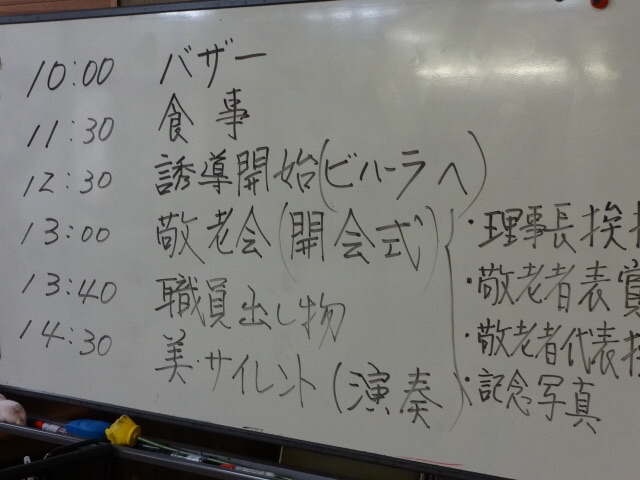 10:00 バザー
11:30 食事
12:30 誘導開始(ビハーラへ)
13:00 敬老会(開会式)
・理事長挨拶
・敬老者表賞
・敬老者代表挨
・記念写真
13:40 職員出し物
14:30 美・サイレント(演奏)